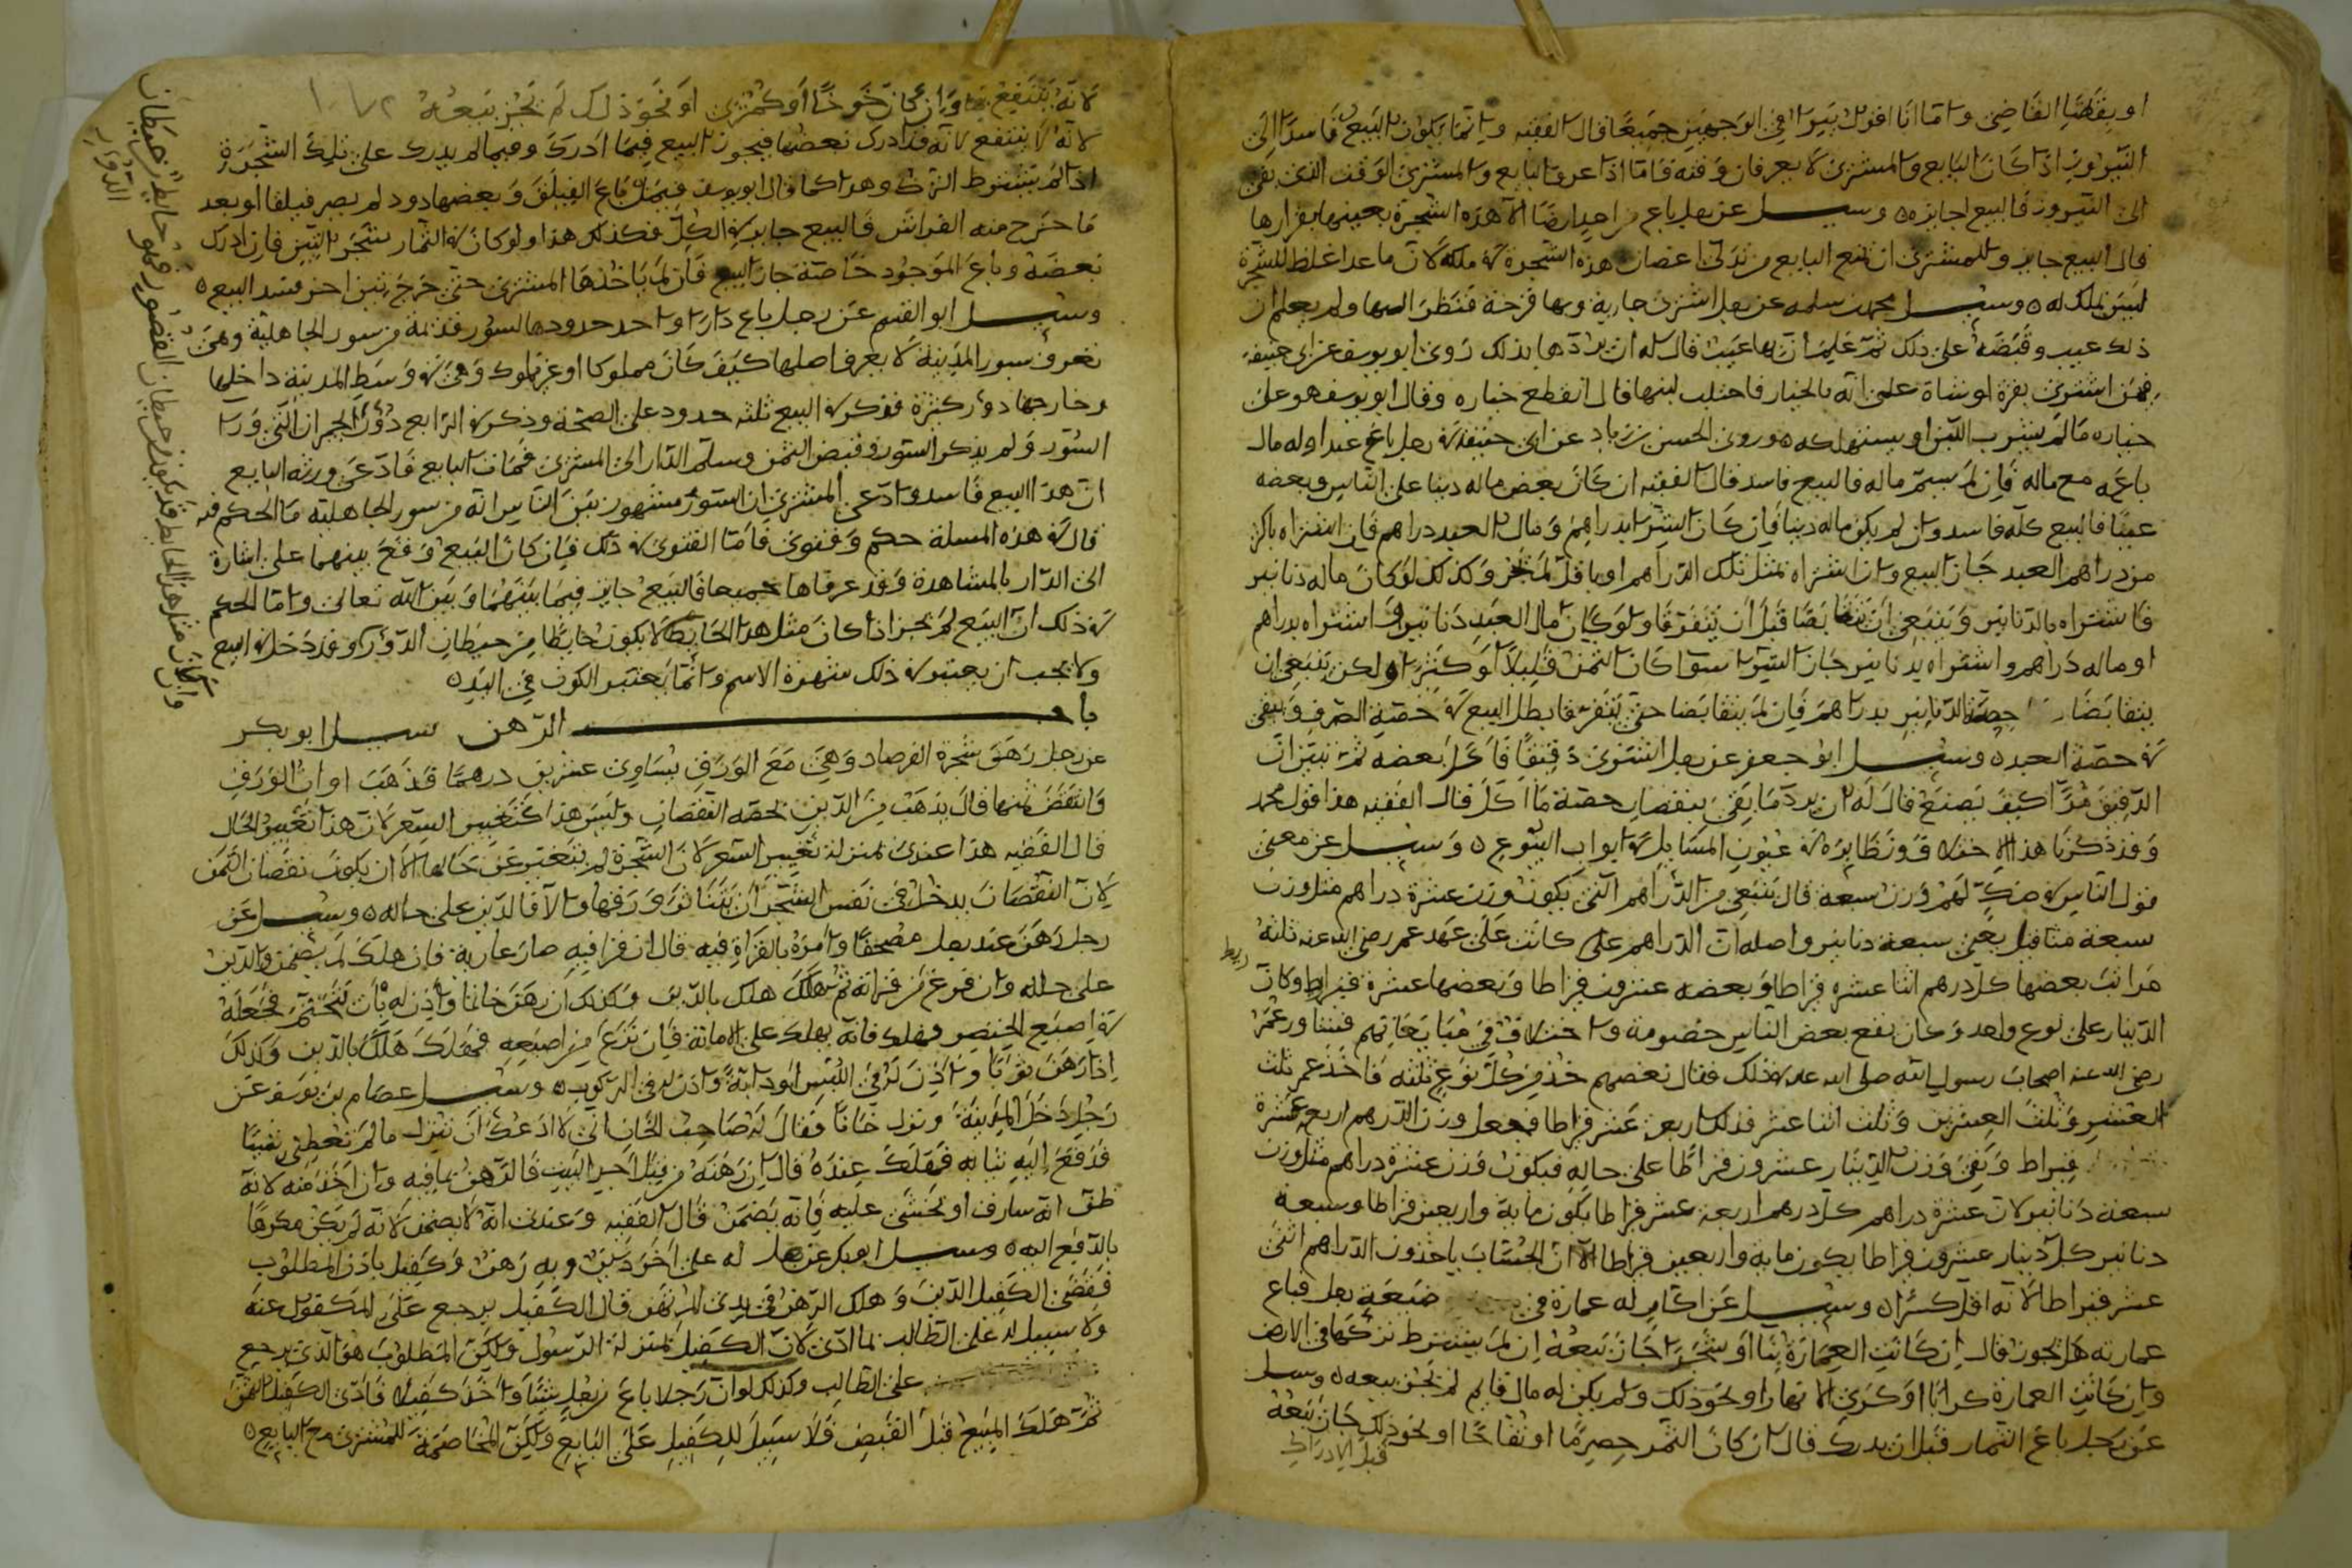 او بقضا القاضي واما انا اقول يتبرا في الوجهين جميعا قال الفقيه وانما يكون البيع فاسدا الى
النيروز اذا كان البايع والمشتري لا يعرفان وقته فاما اذا عرف البايع والمشتري الوقت الذي بقي
الى النيروز فالبيع جايز وسيل عن رجل باع من احد ارضا الا هذه الشجرة بعينها بقرارها
قال البيع جايز وللمشتري ان يمنع البايع من تدلي اغصان هذه الشجرة في ملكه لان ما عدا غلظ الشجرة
ليس بملك له وسيل محمد بن سلمه عن رجل اشترى جارية وبها قرحة فنظر اليها ولم يعلم ان
ذلك عيب وقبضها على ذلك ثم علم ان بها عيب قال له ان يردها بذلك روى ابو يوسف عن ابي حنيفه
فيمن اشترى بقرة او شاة على انه بالخيار فاحتلب لبنها قال انقطع خياره وقال ابو يوسف هو على
خياره ما لم يشرب اللبن او يستهلكه وروى الحسن بن زياد عن ابي حنيفة في رجل باع عبدا وله مال
باعه مع ماله فان لم يسم ماله فالبيع فاسد قال الفقيه ان كان بعض ماله دينا على الناس وبعضه
عينا فالبيع كله فاسد وان لم يكن ماله دينا فان كان الشرا بدراهم ومال العبد دراهم فان اشتراه باكثر
من دراهم العبد جاز البيع وان اشتراه بمثل تلك الدراهم او باقل لم يجز وكذلك لو كان ماله دنانير
فاشتراه بالدنانير وينبغي ان يتقابضا قبل ان يتفرقا ولو كان مال العبد دنانير واشتراه بدراهم
او ماله دراهم واشتراه بدنانير جاز الشرا سوا كان الثمن قليلا او كثيرا ولكن ينبغي ان
يتقابضا حصة الدنانير بدراهم فان لم يتقابضا حتى يتفرقا بطل البيع في حصة الصرف وبقي
في حصة العبد وسيل ابو جعفر عن رجل اشترى دقيقا فاكل بعضه ثم تبين ان
الدقيق مرا كيف يصنع قال له ان يرد ما بقي بنقصان حصة ما اكل قال الفقيه هذا قول محمد
وقد ذكرنا هذا ونظايره في عيون المسايل في ابواب البيوع وسيل عن معنى
قول الناس في صك لهم وزن سبعة قال ينبغي من الدراهم التي يكون وزن عشرة دراهم مثل وزن
سبعة مثاقيل يعني سبعة دنانير واصله ان الدراهم كانت على عهد عمر رضي الله عنه ثلثة
مراتب بعضها كل درهم اثنا عشرة قيراطا وبعضه عشرون قيراطا وبعضها عشرة قيراط وكان
الدينار على نوع واحد وكان يقع بعض الناس خصومة واختلاف في مبايعاتهم فشاور عمر
رضي الله عنه اصحاب رسول الله صلى الله عليه في ذلك فقال بعضهم خذ من كل نوع ثلثه فاخذ عمر ثلث
العشر وثلث العشرين وثلث اثنا عشر فذلك اربع عشر قيراطا فجعل وزن الدرهم اربع عشرة
قيراط وبقي وزن الدينار عشرون قيراطا على حاله فيكون وزن عشرة دراهم مثل وزن
سبعة دنانير لان عشرة دراهم كل درهم اربعة عشر قيراطا يكون ماية واربعين قيراطا وسبعة
دنانير كل دينار عشرون قيراطا يكون ماية واربعين قيراطا الا ان الحساب ياخذون الدراهم اثني
عشر قيراطا لانه اقل كسرا وسيل عن اكار له عمارة في ضيعة رجل فباع
عمارته هل يجوز قال ان كانت العمارة بنا او شجرا جاز بيعه ان لم يشترط تركها في الارض
وان كانت العمارة كرابا او كرى الانهار او نحو ذلك ولم يكن له مال قايم لم يجز بيعه وسيل
عن رجل باع الثمار قبل ان يدرك قال ان كان الثمر حصرما او تفاحا او نحو ذلك جاز بيعه
قبل الادراك
لانه ينتفع بها وان كان خوخا او كمثرى او نحو ذلك لم يجز بيعه
لانه لا ينتفع لانه قد ادرك بعضها فيجوز البيع فيما ادرك وفيما لم يدرك على تلك الشجرة
اذا لم يشترط الترك وهذا كما قال ابو يوسف فيمن باع الفيلق وبعضها دود لم يصر فيلقا او بعد
ما خرج منه الفراش فالبيع جايز في الكل فكذلك هذا ولو كان في الثمار شجر التين فان ادرك
بعضه وباع الموجود خاصة جاز البيع فان لم ياخذها المشتري حتى خرج تين اخر فسد البيع
وسيل ابو القسم عن رجل باع دارا واحد حدودها لسور قديمة من سور الجاهلية وهي
تعرف بسور المدينة لا يعرف اصلها كيف كان مملوكا او غير مملوك وهي في وسط المدينة داخلها
وخارجها دور كثيرة فذكر في البيع ثلثة حدود على الصحة وذكر في الرابع دور الجيران التي ورا
السور ولم يذكر السور وقبض الثمن وسلم الدار الى المشتري فمات البايع فادعى ورثة البايع
ان هذا البيع فاسد وادعى المشتري ان السور مشهور بين الناس انه من سور الجاهلية ما الحكم فيه
قال في هذه المسلة حكم وفتوى فاما الفتوى في ذلك فان كان البيع وقع بينهما على اشارة
الى الدار بالمشاهدة وقد عرفاها جميعا فالبيع جايز فيما بينهما وبين الله تعالى واما الحكم
في ذلك ان البيع لم يجز اذا كان مثل هذا الحايط لا يكون حايطا من حيطان الدور وقد دخل في البيع
ولا يجب ان يعتبر في ذلك شهرة الاسم وانما يعتبر الكون في اليد
باب الرهن سيل ابو بكر
عن رجل رهن شجرة الفرصاد وهي مع الورق يساوي عشرين درهما فذهب اوان الورق
وانتقض ثمنها قال يذهب من الدين بحصة النقصان وليس هذا كتغيير السعر لان هذا تغيير الحال
قال الفقيه هذا عندي بمنزلة تغيير السعر لان الشجرة لم يتغير عن حالها الا ان يكون نقصان الثمن
لان النقصان يدخل في نفس الشجر ان يتناثر ورقها والا فالدين على حاله وسيل عن
رجل رهن عند رجل مصحفا وامره بالقراة فيه قال ان قرا فيه صار عارية فان هلك لم يضمن والدين
على حاله وان فرغ من قراته ثم هلك هلك بالدين وكذلك ان رهن خاتما واذن له بان يتختم فجعله
في اصبع الخنصر فهلك فانه يهلك على الامانة فان نزع من اصبعه فهلك هلك بالدين وكذلك
اذا رهن ثوبا واذن له في اللبس او دابة واذن له في الركوب وسيل عصام بن يوسف عن
رجل دخل المدينة ونزل خانا فقال له صاحب الخان اني لا ادعك ان تنزل ما لم تعطني شيا
فدفع اليه ثيابه فهلك عنده قال ان رهنه من قبل اجر البيت فالرهن بما فيه وان اخذ منه لانه
ظن انه سارق او يخشى عليه فانه يضمن قال الفقيه وعندي انه لا يضمن لانه لم يكن مكرها
بالدفع اليه وسيل ابو بكر عن رجل له على اخر دين وبه رهن وكفيل باذن المطلوب
فقضى الكفيل الدين وهلك الرهن في يدي المرتهن قال الكفيل يرجع على المكفول عنه
ولا سبيل له على الطالب بما ادى لان الكفيل بمنزلة الرسول ولكن المطلوب هو الذي يرجع
على الطالب وكذلك لو ان رجلا باع من رجل شيئا واخذ كفيلا فادى الكفيل الثمن
ثم هلك المبيع قبل القبض فلا سبيل للكفيل على البايع ولكن المخاصمة للمشتري مع البايع